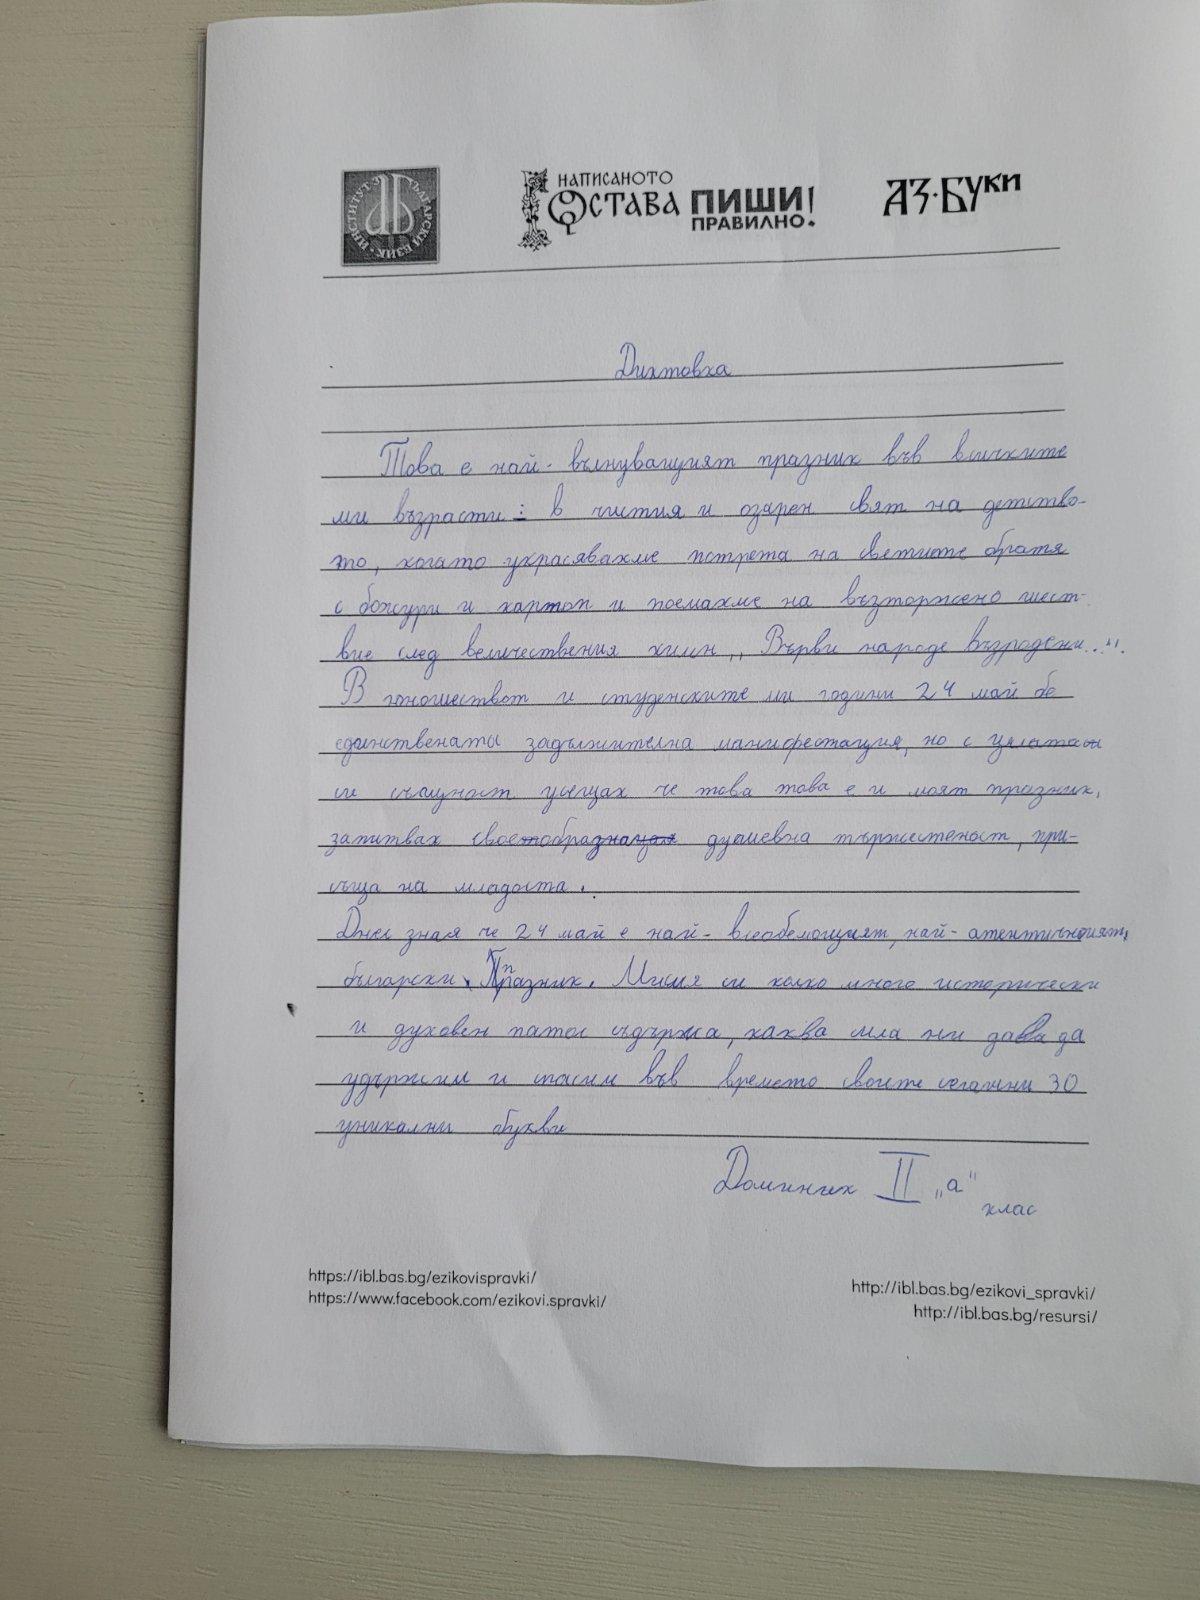 ИНСТИТУТ ЗА БЪЛГАРСКИ ЕЗИК
НАПИСАНОТО
ОСТАВА ПИШИ!
ПРАВИЛНО!
АЗ·БУКИ
Диктовка
Това е най- вълнуващият празник във всичките
ми възрасти : в чистия и озарен свят на детство-
то, когато украсявахме пстрета на светите братя
с божури и картоп и поемахме на възторжено шест-
вие след величествения химн ,, Върви народе възродени...".
В юношествот и студенските ми години 24 май бе
единствената задължителна манифестация, но с цялата
си същност усещах че това това е и моят празник,
запитвах своеобразна душевна тържественост, при-
съща на младоста.
Днес зная че 24 май е най- всеобемощият, най- атентичният
български празник. Мисля си колко много исторически
и духовен патос съдържа, каква сила ни дава да
удържим и спасим във времето своите сегашни 30
уникални букви
Доминик II „а"
клас
https://ibl.bas.bg/ezikovispravki/
https://www.facebook.com/ezikovi.spravki/
http://ibl.bas.bg/ezikovi_spravki/
http://ibl.bas.bg/resursi/